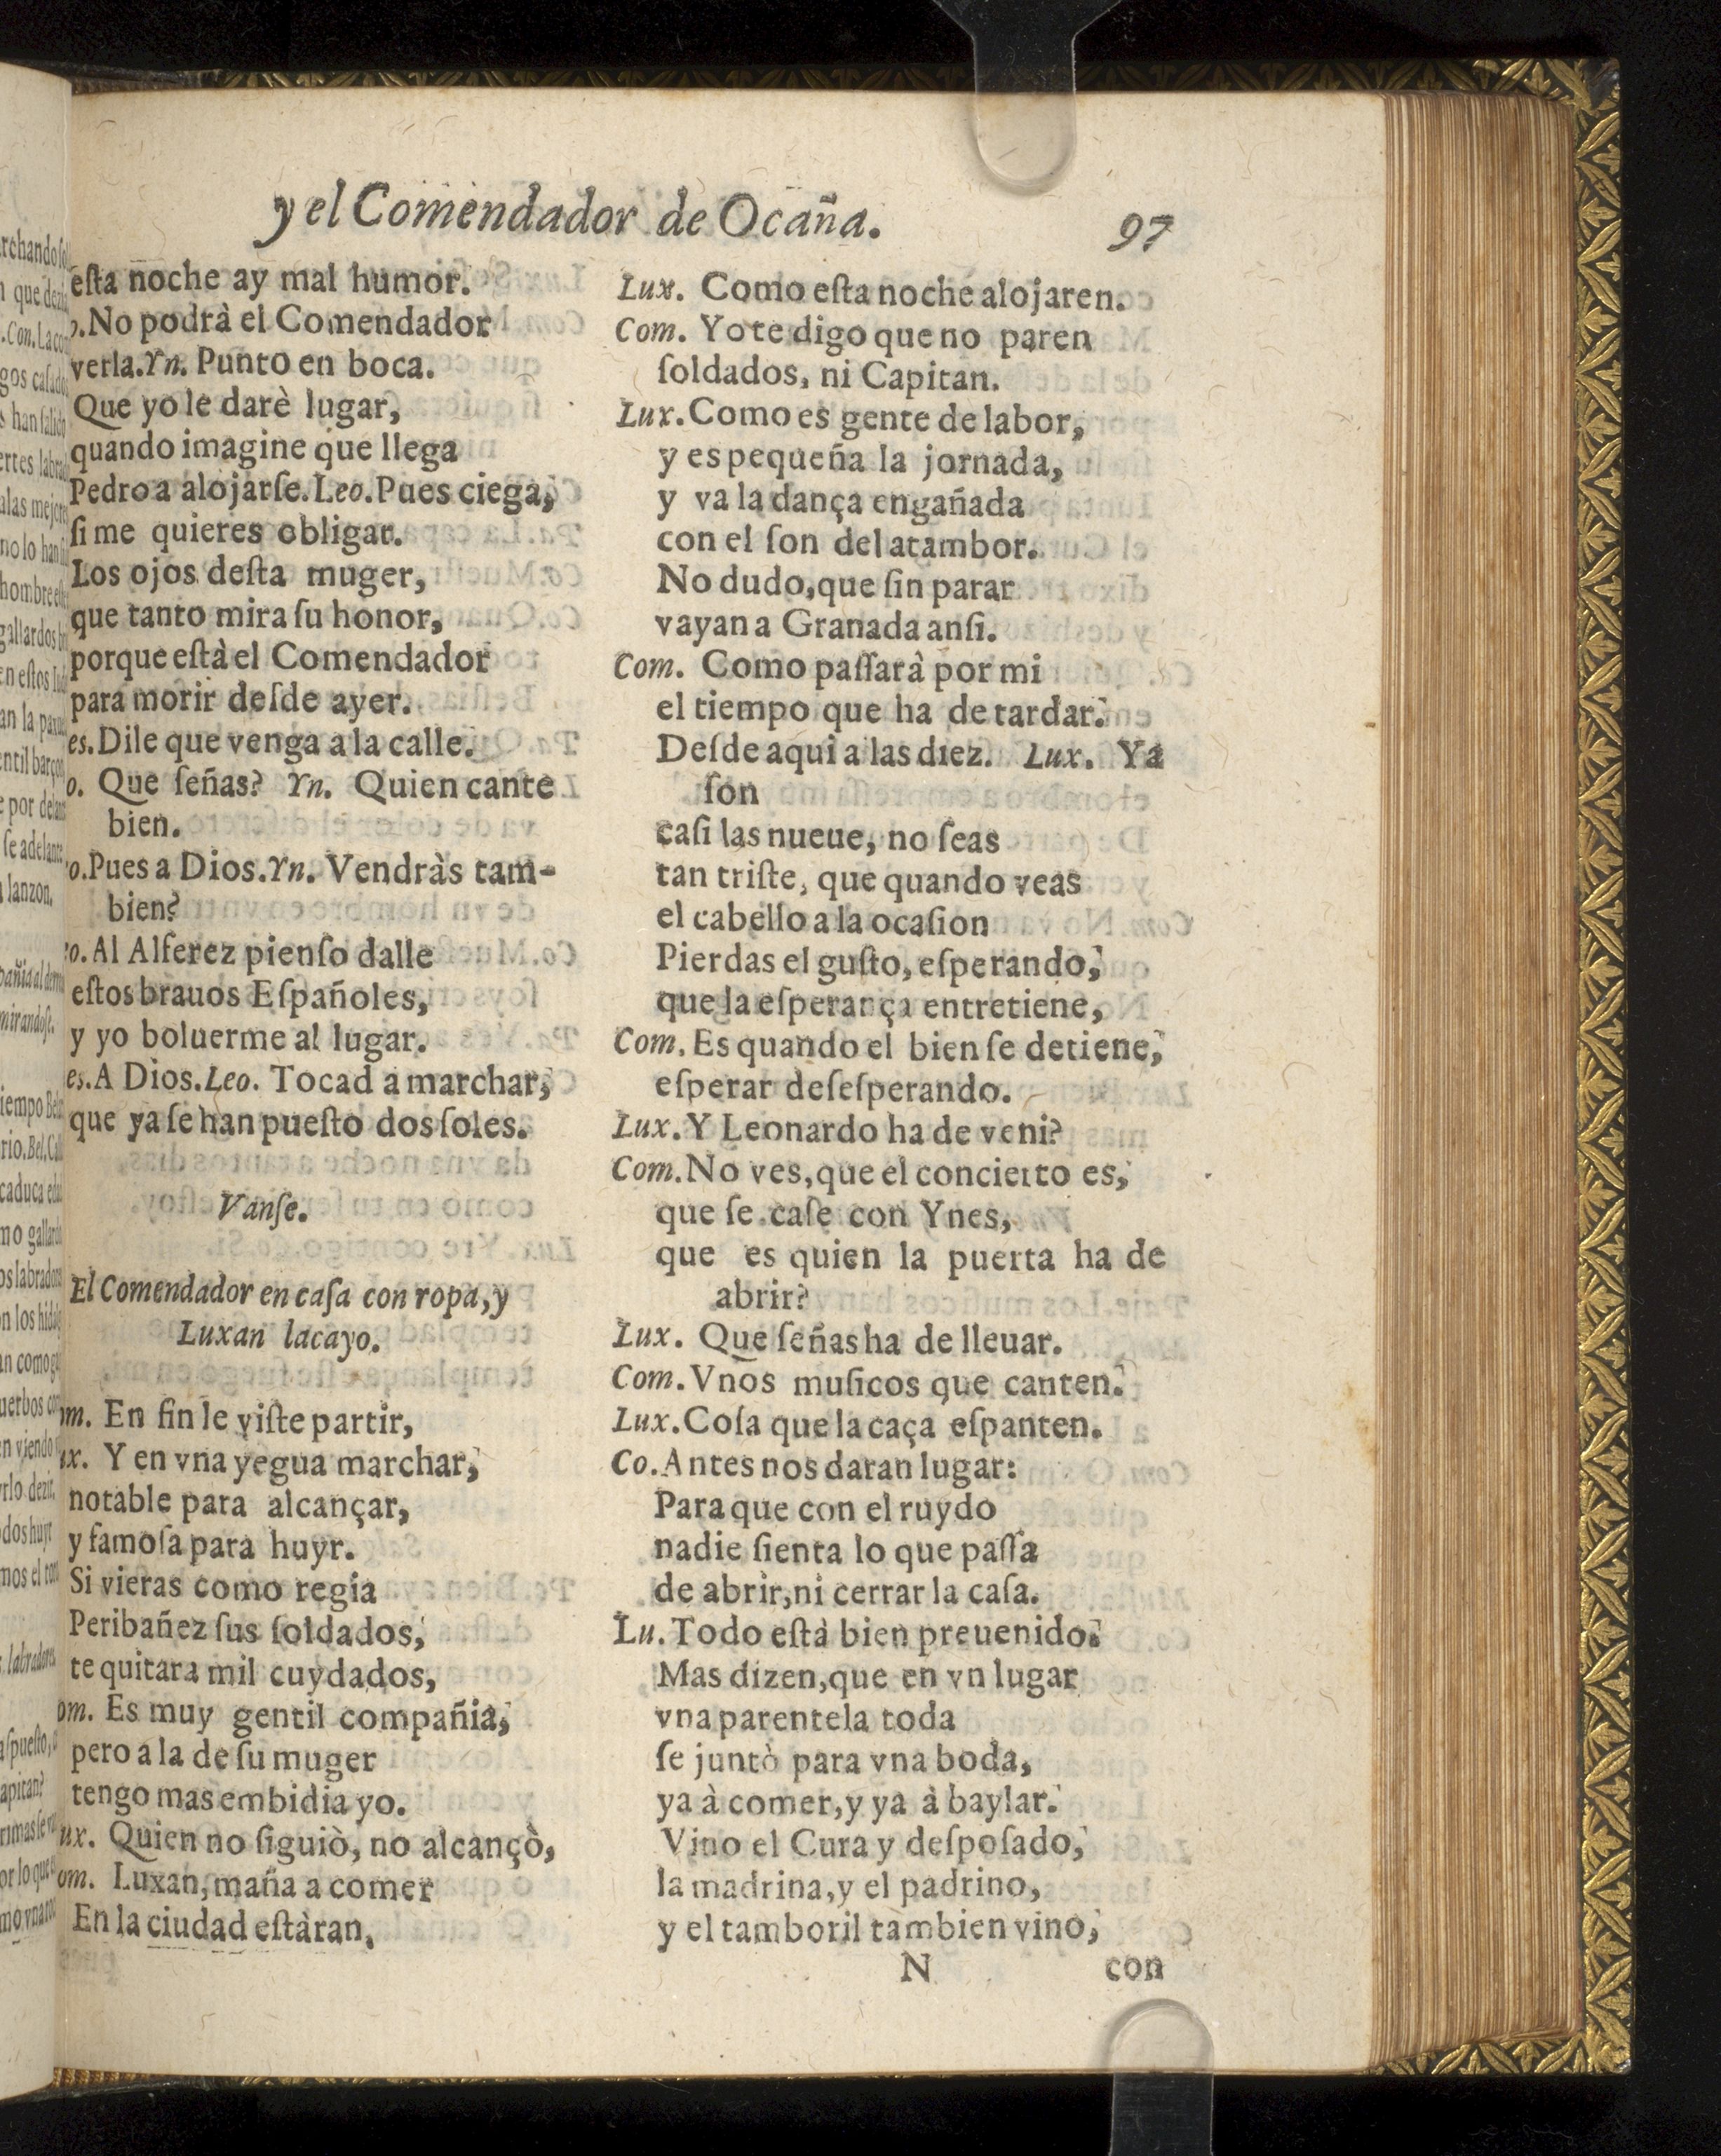 y el Comendador de Ocaña.
97
eſta noche ay mal humor.
o.No podrà el Comendador
verla.Yn. Punto en boca.
Que yo le darè lugar,
quando imagine que llega
Pedro a alojarſe.Leo.Pues ciega,
ſi me quieres obligar.
Los ojos deſta muger,
que tanto mira ſu honor,
porque eſtà el Comendador
para morir deſde ayer.
es.Dile que venga a la calle.
o. Que ſeñas? Yn. Quien cante
bien.
o.Pues a Dios.Yn. Vendràs tam-
bien?
o.Al Alferez pienſo dalle
eſtos brauos Eſpañoles,
y yo boluerme al lugar.
es.A Dios.Leo. Tocad a marchar,
que ya ſe han pueſto dos ſoles.
Vanſe.
El Comendador en caſa con ropa, y
Luxan lacayo.
om. En fin le viſte partir,
ux. Y en vna yegua marchar,
notable para alcançar,
y famoſa para huyr.
Si vieras como regia
Peribañez ſus ſoldados,
te quitara mil cuydados,
om. Es muy gentil compañia,
pero a la de ſu muger
tengo mas embidia yo.
ux. Quien no ſiguiò, no alcançò,
om. Luxan, maña a comer
En la ciudad eſtàran,
Lux. Como eſta noche alojaren.
Com. Yo te digo que no paren
ſoldados, ni Capitan.
Lux.Como es gente de labor,
y es pequeña la jornada,
y va la dança engañada
con el ſon del atambor.
No dudo,que ſin parar
vayan a Granada anſi.
Com. Como paſſarà por mi
el tiempo que ha de tardar.
Deſde aqui a las diez. Lux. Ya
ſon
caſi las nueue, no ſeas
tan triſte, que quando veas
el cabello a la ocaſion
Pierdas el guſto, eſperando,
que la eſperança entretiene,
Com.Es quando el bien ſe detiene,
eſperar deſeſperando.
Lux.Y Leonardo ha de veni?
Com.No ves,que el concierto es,
que ſe caſe con Ynes,
que es quien la puerta ha de
abrir?
Lux. Que ſeñas ha de lleuar.
Com.Vnos muſicos que canten.
Lux.Coſa que la caça eſpanten.
Co.Antes nos daran lugar:
Para que con el ruydo
nadie ſienta lo que paſſa
de abrir,ni cerrar la caſa.
Lu.Todo eſtà bien preuenido.
Mas dizen,que en vn lugar
vna parentela toda
ſe juntò para vna boda,
ya à comer,y ya à baylar.
Vino el Cura y deſpoſado,
la madrina,y el padrino,
y el tamboril tambien vino,
N
con